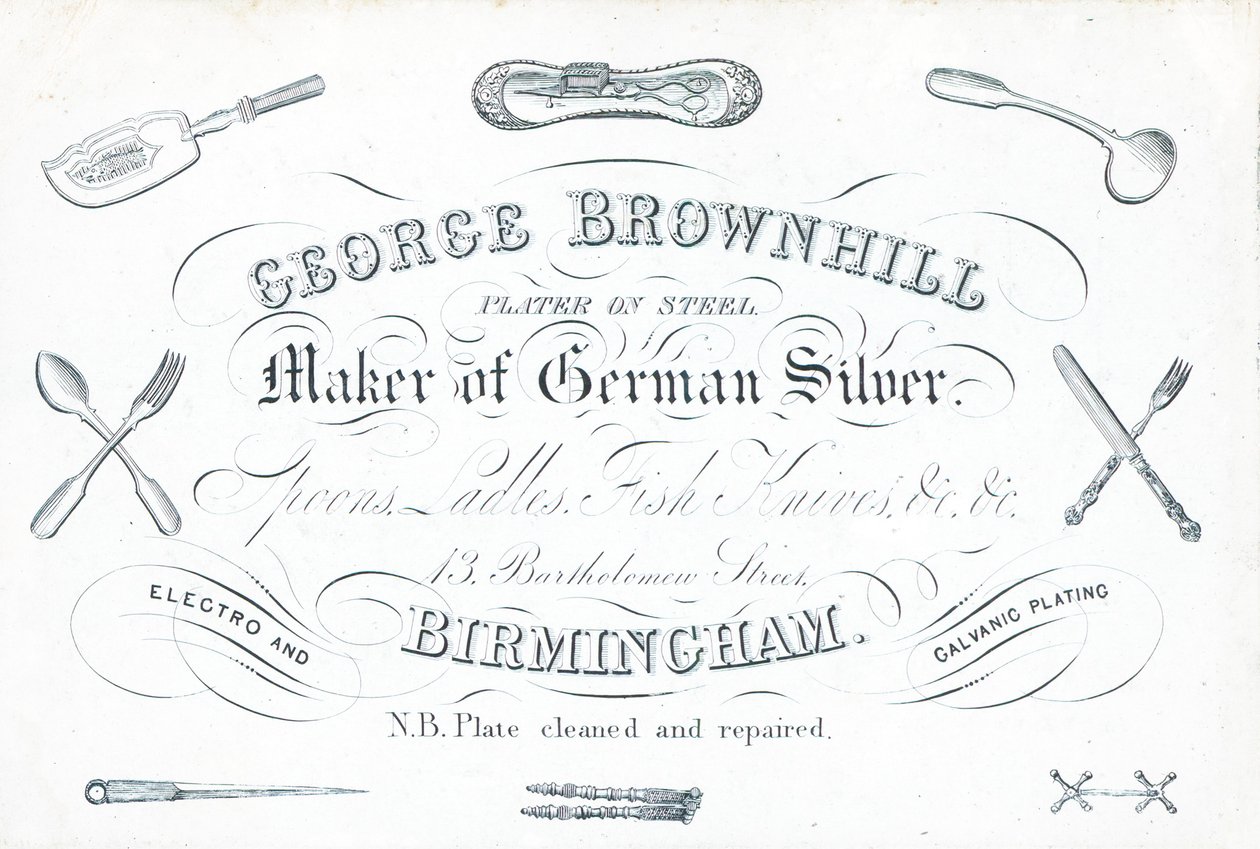 GEORGE BROWNHILL
PLATER ON STEEL.
Maker of German Silver.
Spoons, Ladles, Fish Knives, &c. &c.
13, Bartholomew Street,
BIRMINGHAM.
ELECTRO AND
GALVANIC PLATING
N.B. Plate cleaned and repaired.